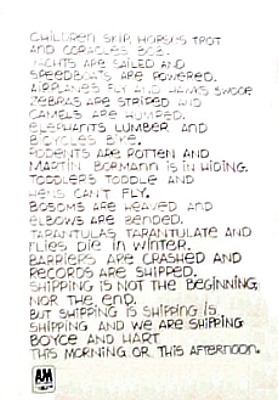 CHILDREN SKIP, HORSES TROT
AND CORACLES BOB.
YACHTS ARE SAILED AND
SPEEDBOATS ARE POWERED.
AIRPLANES FLY AND HAWKS SWOOP
ZEBRAS ARE STRIPED AND
CAMELS ARE HUMPED.
ELEPHANTS LUMBER AND
BICYCLES BIKE.
RODENTS ARE ROTTEN AND
MARTIN BORMANN IS IN HIDING.
TODDLERS TODDLE AND
HENS CAN'T FLY.
BOSOMS ARE HEAVED AND
ELBOWS ARE BENDED.
TARANTULAS TARANTULATE AND
FLIES DIE IN WINTER.
BARRIERS ARE CRASHED AND
RECORDS ARE SHIPPED.
SHIPPING IS NOT THE BEGINNING,
NOR THE END.
BUT SHIPPING IS SHIPPING IS
SHIPPING AND WE ARE SHIPPING
BOYCE AND HART
THIS MORNING. OR THIS AFTERNOON.
A&M